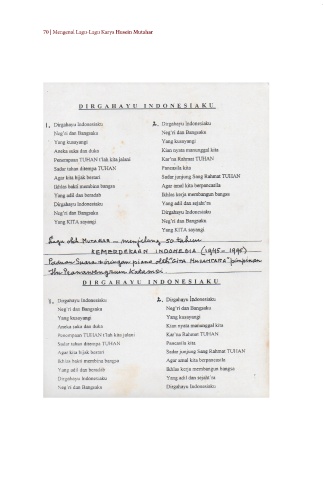 70 | Mengenal Lagu-Lagu Karya Husein Mutahar
DIRGAHAYU INDONESIAKU
1. Dirgahayu Indonesiaku
Neg'ri dan Bangsaku
Yang kusayangi
Aneka suku dan duka
Penempaan TUHAN t'lah kita jalani
Sadar tahan ditempa TUHAN
Agar kita bijak bestari
Ikhlas bakti membina bangsa
Yang adil dan beradab
Dirgahayu Indonesiaku
Neg'ri dan Bangsaku
Yang KITA sayangi
2. Dirgahayu Indonesiaku
Neg'ri dan Bangsaku
Yang kusayangi
Kian nyata manunggal kita
Kar'na Rahmat TUHAN
Pancasila kita
Sadar junjung Sang Rahmat TUHAN
Agar amal kita berpancasila
Ikhlas kerja membangun bangsa
Yang adil dan sejaht'ra
Dirgahayu Indonesiaku
Neg'ri dan Bangsaku
Yang KITA sayangi
Lagu oleh MUTAHAR - menjelang 50 tahun
KEMERDEKAAN INDONESIA (1945 - 1995)
Paduan Suara iringan piano oleh "GITA NUSANTARA" pimpinan
DIRGAHAYU INDONESIAKU
1. Dirgahayu Indonesiaku
Neg'ri dan Bangsaku
Yang kusayangi
Aneka suka dan duka
Penempaan TUHAN t'lah kita jalani
Sadar tahan ditempa TUHAN
Agar kita bijak bestari
Ikhlas bakti membina bangsa
Yang adil dan beradab
Dirgahayu Indonesiaku
Neg'ri dan Bangsaku
2. Dirgahayu Indonesiaku
Neg'ri dan Bangsaku
Yang kusayangi
Kian nyata manunggal kita
Kar'na Rahmat TUHAN
Pancasila kita
Sadar junjung Sang Rahmat TUHAN
Agar amal kita berpancasila
Ikhlas kerja membangun bangsa
Yang adil dan sejaht'ra
Dirgahayu Indonesiaku